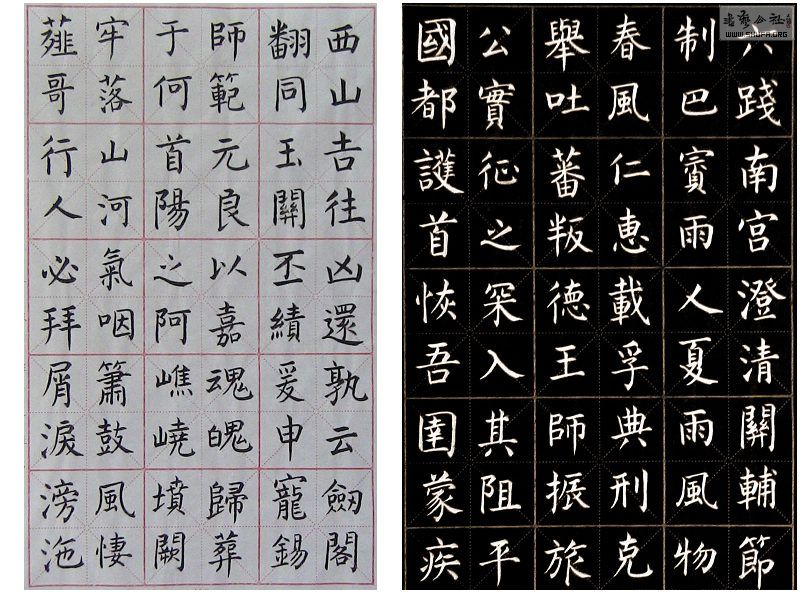 西山吉往凶還孰云劒閣
翻同玉關丕績爰申寵錫
師範元良以嘉魂魄歸葬
于何首陽之阿嶕嶢墳闕
牢落山河氣咽簫鼓風悽
薤哥行人必拜屑淚滂沲
六踐南宮澄清關輔節
制巴賨雨人夏雨風物
春風仁惠載孚典刑克
舉吐蕃叛德王師振旅
公實征之罙入其阻平
國都護首恢吾圉蒙疾
WWW.SHUFA.ORG